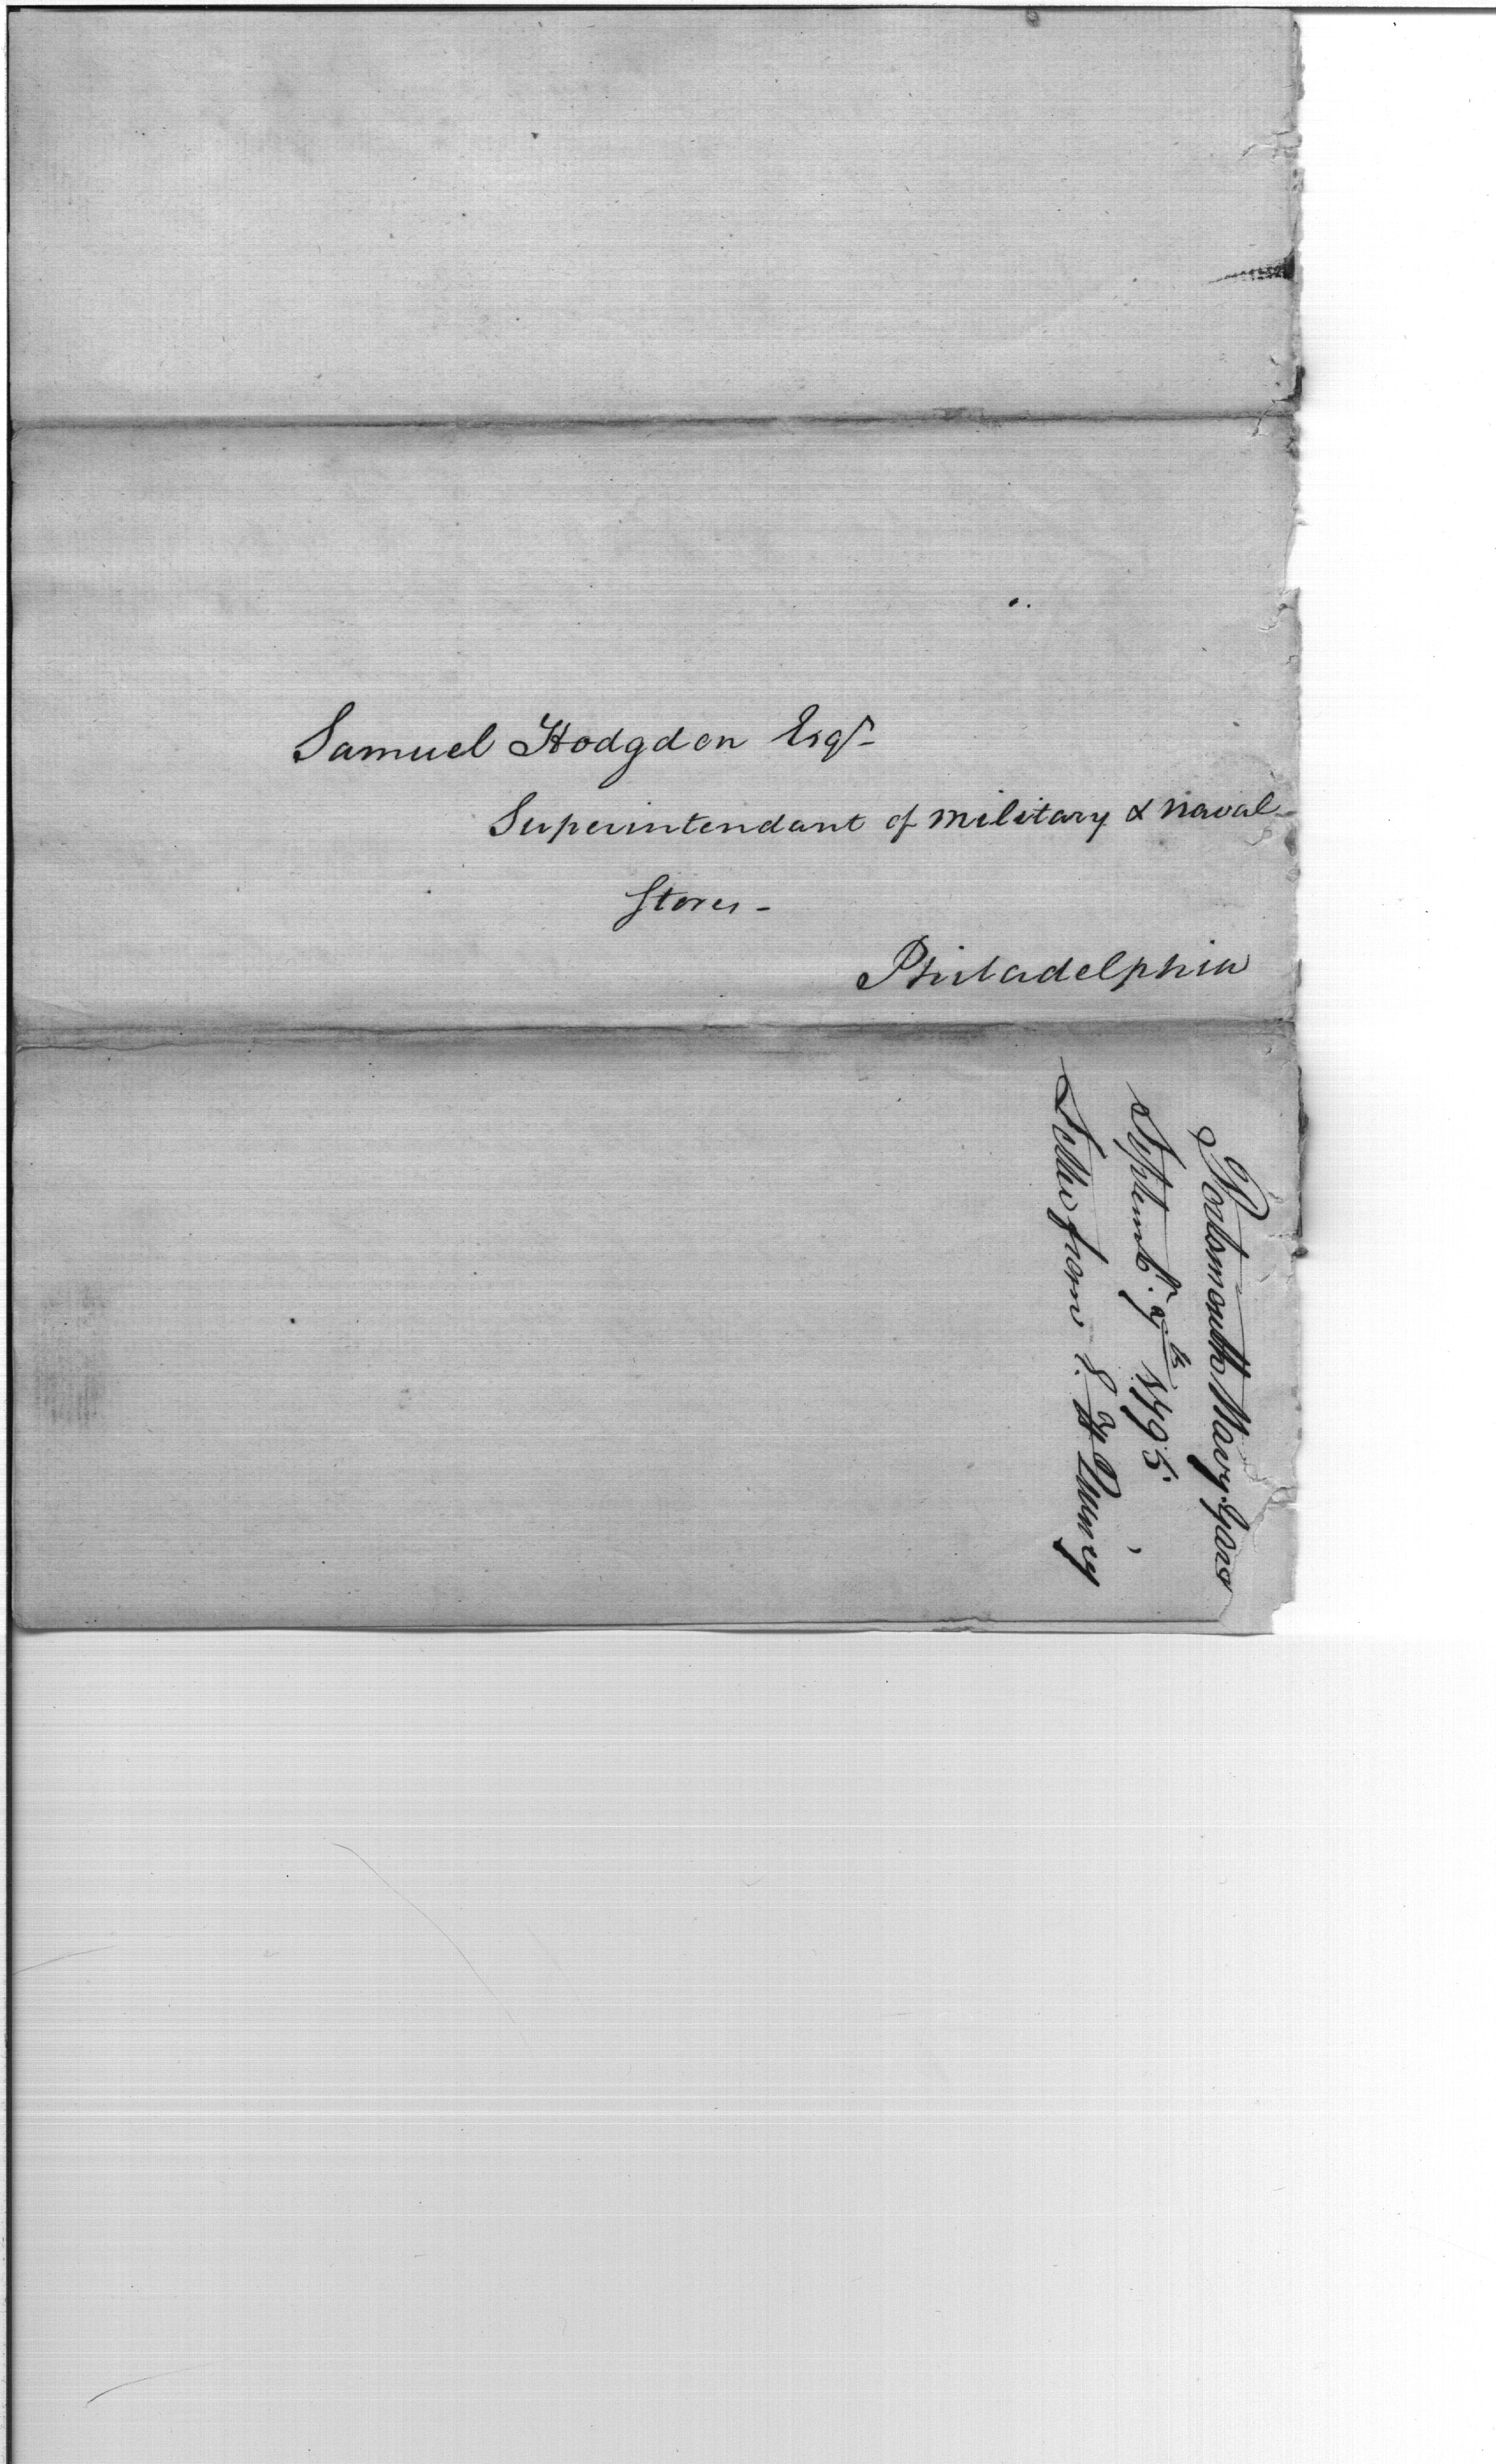 Samuel Hodgdon Esqr-
Superintendant of military & naval
Stores -
Philadelphia
Portsmouth Navy Yard
Septembr. 9th 1795.
Letter from